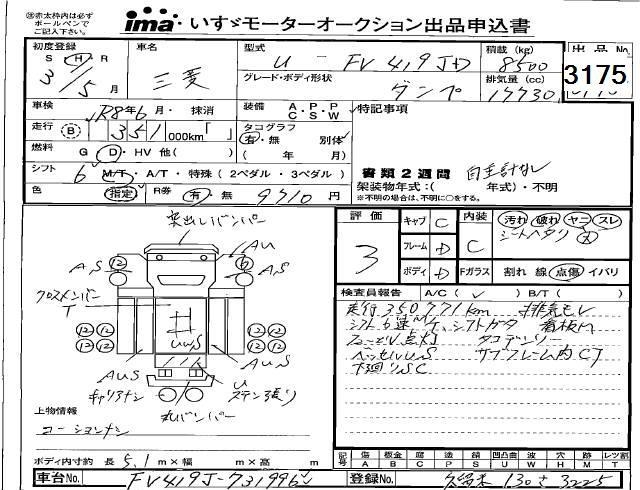 ㊟赤太枠内は必ず
ボールペンで
ご記入下さい。
ima いすゞモーターオークション出品申込書
初度登録 S・H・R 3年 5月
車名 三菱
型式 U-FV419JD
積載(kg) 8500
出品No. 3175
グレード・ボディ形状 ダンプ
排気量(cc) 17730
車検 R8年6月・抹消
装備 A・P・P C・S・W
特記事項
走行 B 351,000km「 」
タコグラフ 有・無 別体 ( 年 月)
燃料 G・D・HV 他( )
シフト 6 M/T・A/T・特殊(2ペダル・3ペダル)
書類2週間
架装物年式:( 年式)・不明
※不明の場合は、不明に○をする。
色 指定
R券 有・無 9710円
突出しバンパー
AU
AS
AS
12
クロスメンバー
AUS
U
AUS
キャリアナシ
ステン張り
丸バンパー
上物情報
コーションナシ
ボディ内寸約 長5.1m×幅 m×高 m
評価 3
キャブ C
フレーム D
ボディ D
内装 C
Fガラス
汚れ 破れ ヤニ スレ
シートヘタリ
割れ 線 点傷 イバリ
検査員報告 A/C( ✓ ) B/T( )
走行350771km 排気モレ
シフト6速M/T、シフトガタ
ベッセルUS サブフレーム内CT
下回りSC
記号 傷A 板金B 腐C 塗P 錆S 凹凸曲U 波W 穴H 跡M レツ割T
車台No. FV419J-731996
登録No. 130さ3225